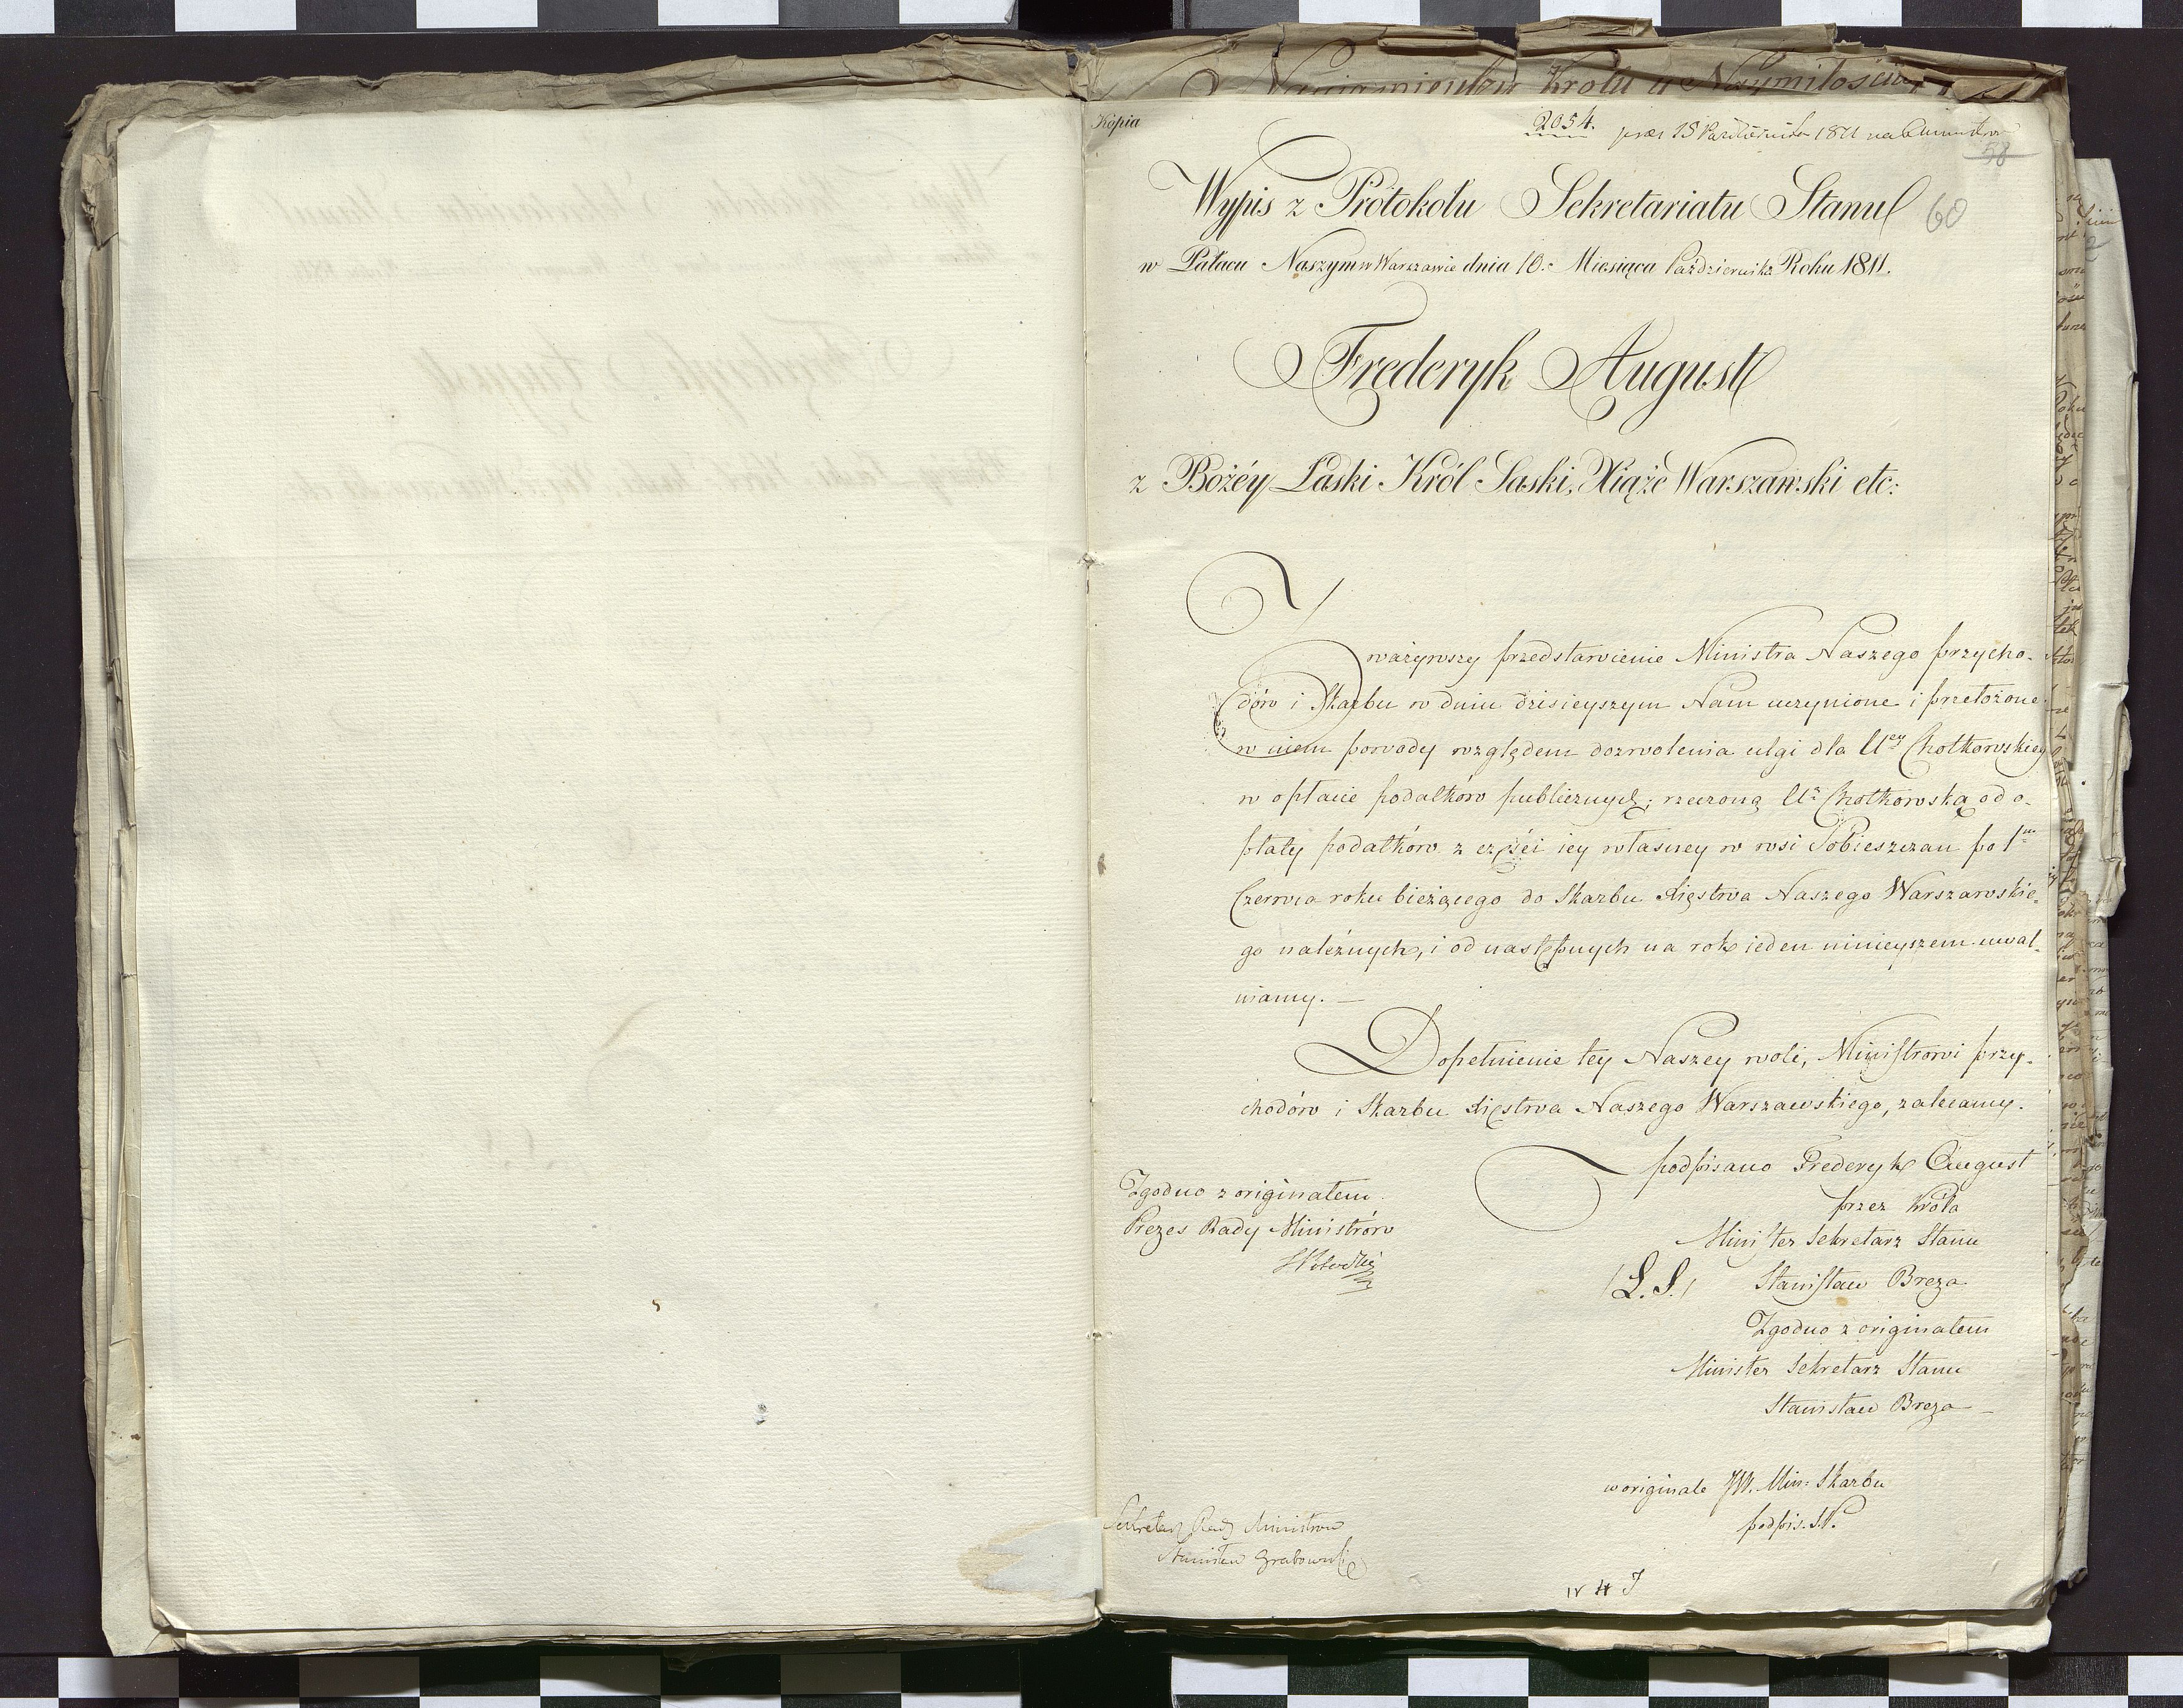 Kopia
2054.
58
Wypis z Protokołu Sekretariatu Stanu
60
w Pałacu Naszym w Warszawie dnia 10. Miesiąca Października Roku 1811.
Frederyk August
z Bożéy Łaski Król Saski, Xiąże Warszawski etc:
Zważywszy przedstawienie Ministra Naszego przycho-
dów i Skarbu w dniu dzisieyszym Nam uczynione i przełożone
w niem powody względem dozwolenia ulgi dla Ur̄ey Chotkowskiey
w opłacie podatków publicznych; rzeczoną Ur̄ Chotkowską od o-
płaty podatków z części iey własney w wsi Sobieszczan po 1m
Czerwca roku bieżącego do Skarbu Xięstwa Naszego Warszawskie-
go należnych, i od następnych na rok ieden ninieyszem uwal-
niamy. —
Dopełnienie tey Naszey woli, Ministrowi przy-
chodów i Skarbu Xięstwa Naszego Warszawskiego, zalecamy.
podpisano Frederyk August
przez Króla
Minister Sekretarz Stanu
(L.S.) Stanisław Breza
Zgodno z originałem
Minister Sekretarz Stanu
Stanisław Breza —
Zgodno z originałem
Prezes Rady Ministrów
w originale JW. Min: Skarbu
podpis.
Sekretarz Rady Ministrów
Stanisław Grabowski